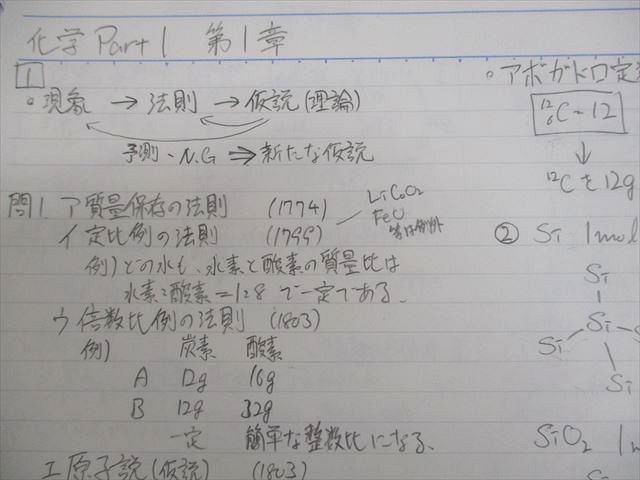 化学 Part 1 第1章
1
○現象 → 法則 → 仮説(理論)
予測・N.G ⇒ 新たな仮説
問1. ア 質量保存の法則 (1774)
イ 定比例の法則 (1799)
LiCoO2
FeO
等は例外
例) どの水も、水素と酸素の質量比は
水素:酸素=1:8 で一定である。
ウ 倍数比例の法則 (1803)
例) 炭素 酸素
A 12g 16g
B 12g 32g
一定 簡単な整数比になる。
エ 原子説(仮説) (1803)
○アボガドロ定
12 6 C = 12
↓
12Cを12g
② Si 1mol
Si
Si Si
Si
SiO2 1m